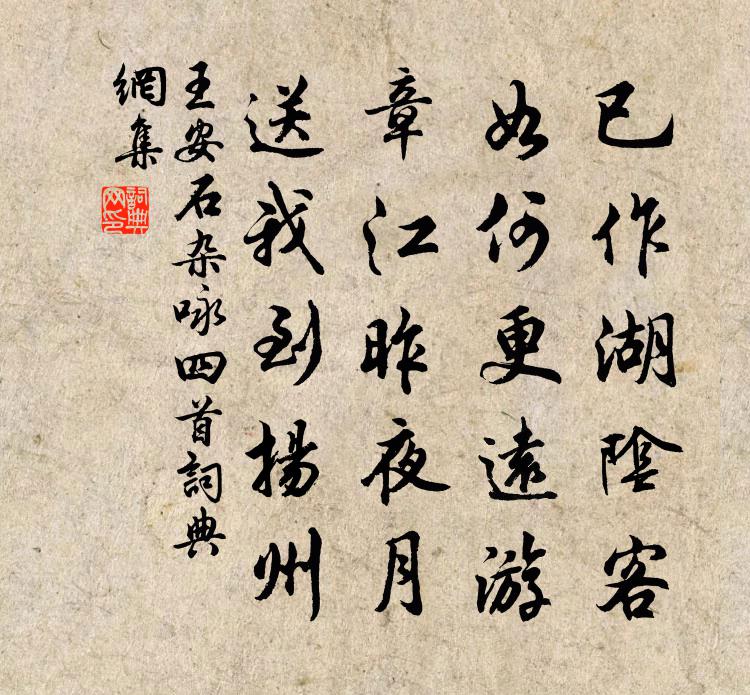 已作湖陰客
如何更遠游
章江昨夜月
送我到揚州
王安石杂咏四首詞典
網集
詞典網印